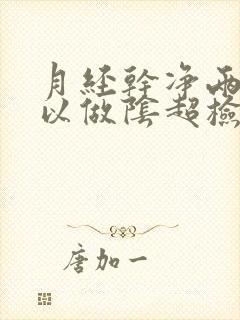 月経幹净兩
以做陰超檢
唐加一